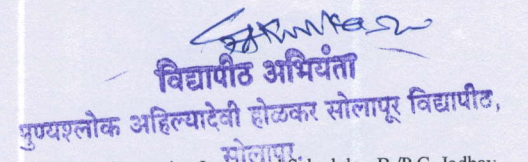 विद्यापीठ अभियंता
पुण्यश्लोक अहिल्यादेवी होळकर सोलापूर विद्यापीठ,
सोलापूर.
Jadhav